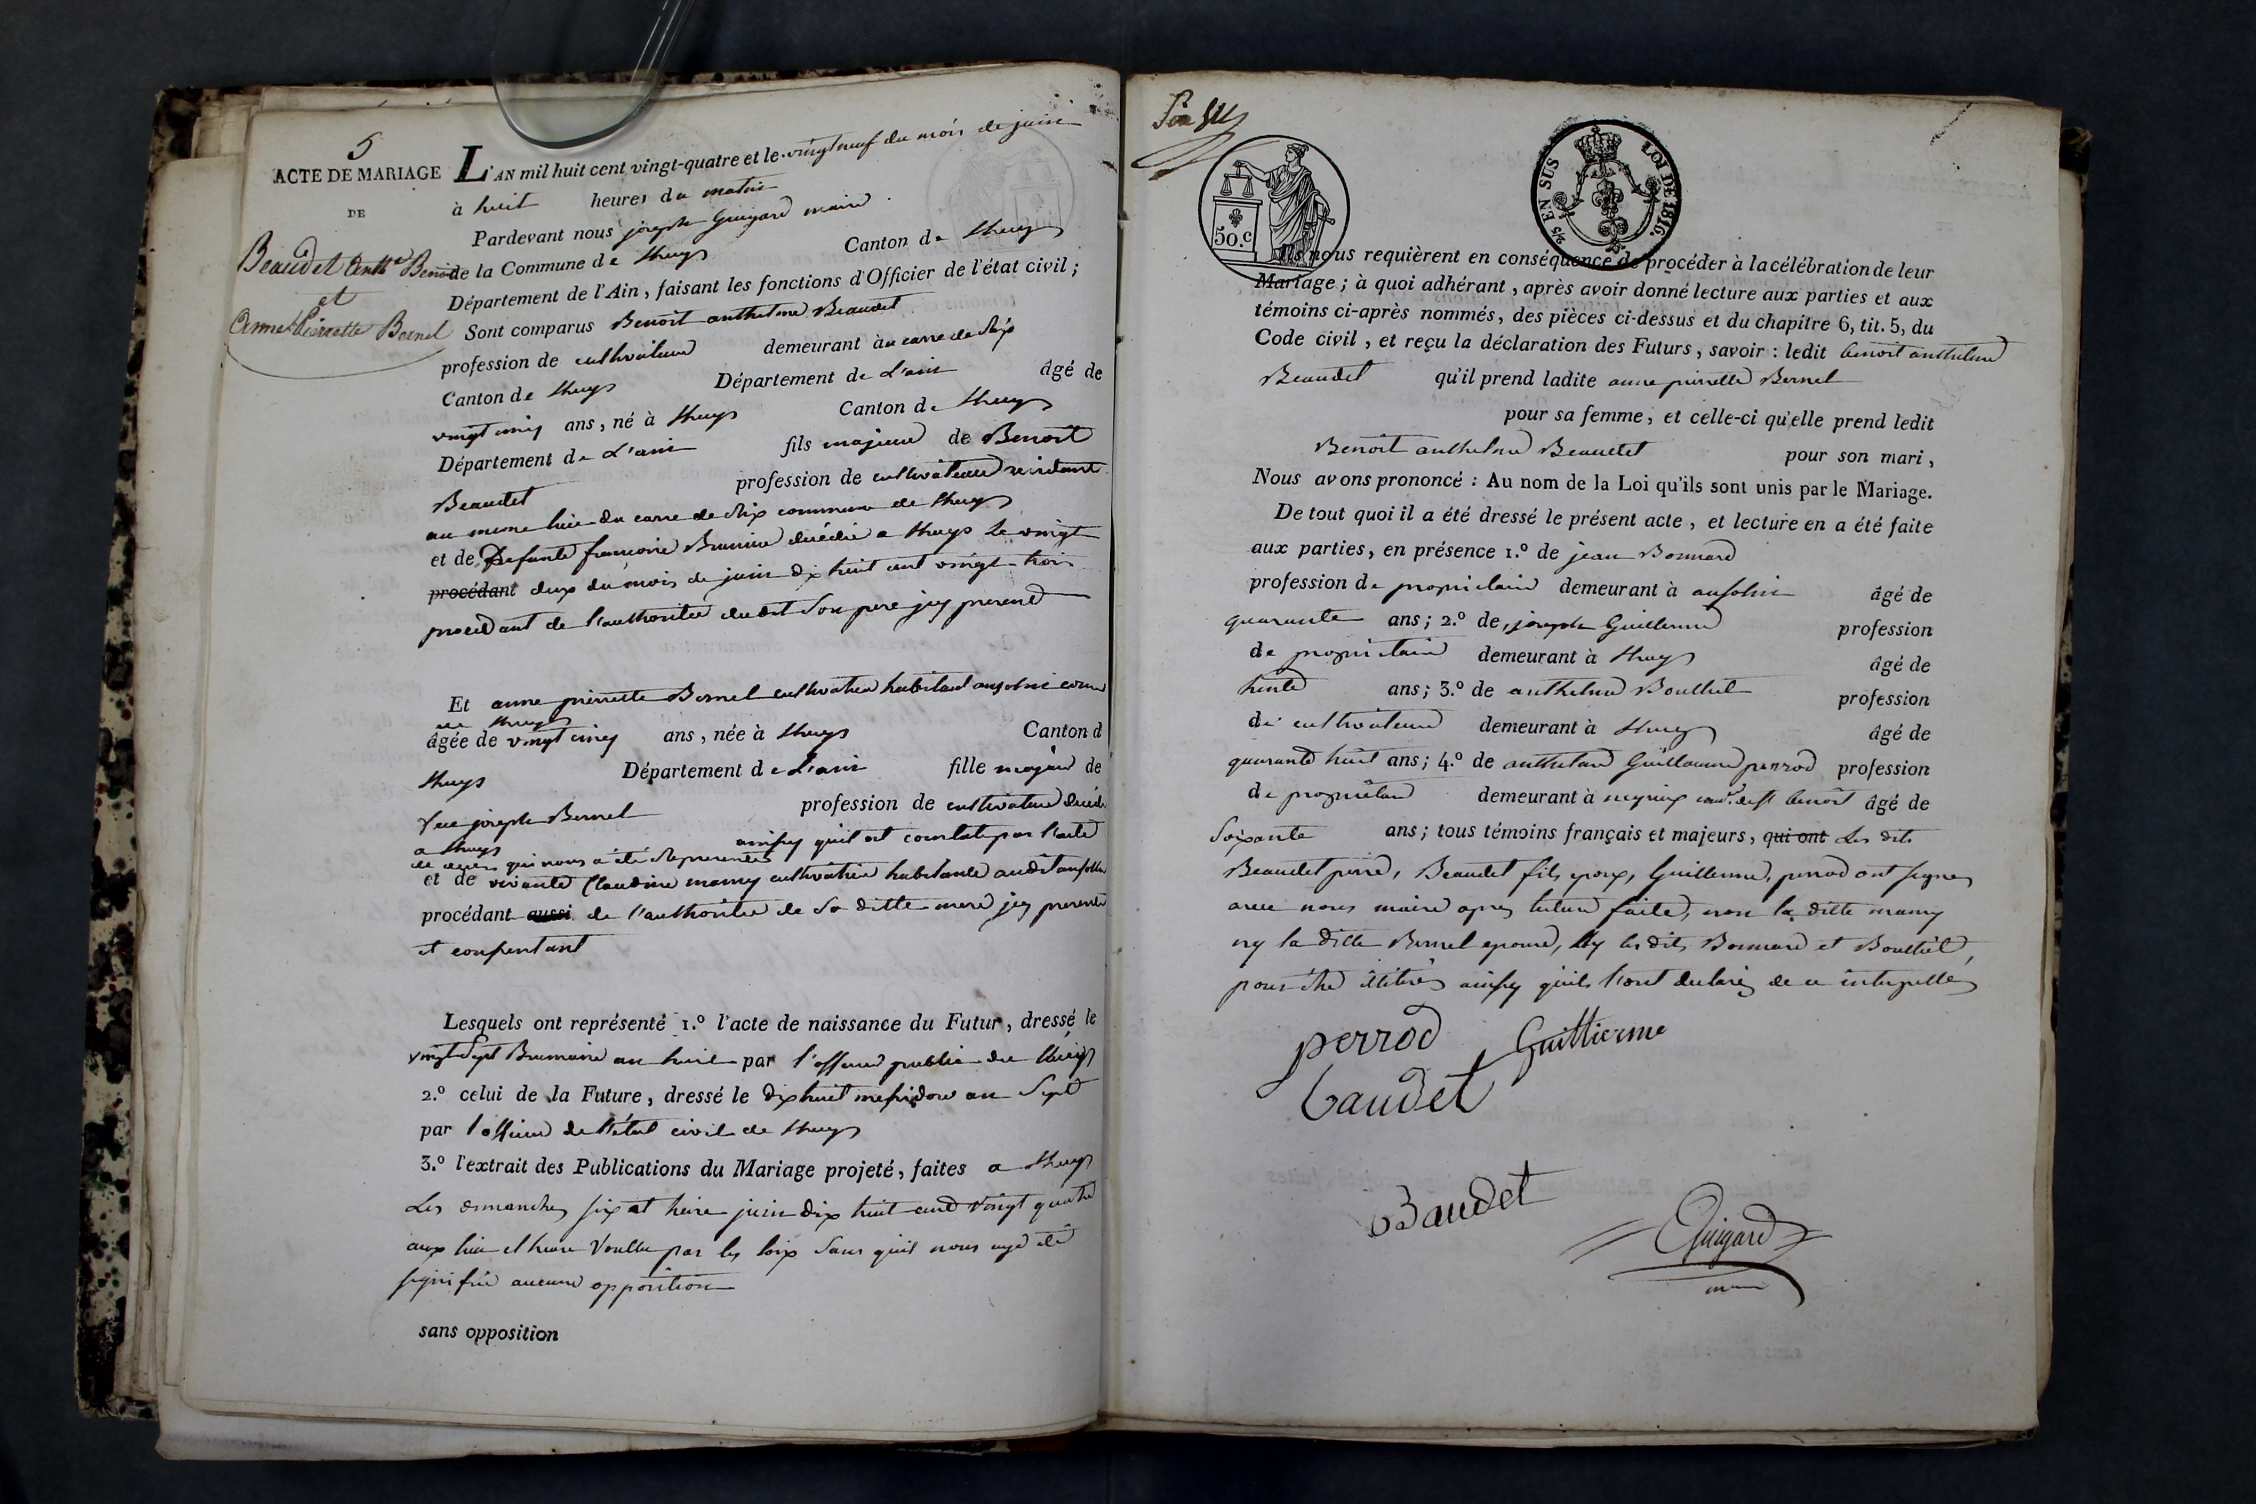 5
ACTE DE MARIAGE
DE
Beaudet Benoit
et
Anne Pierrette Bornel
L'AN mil huit cent vingt-quatre et le vingt neuf du mois de juin
à huit heures du matin
Pardevant nous joseph Guigard maire
de la Commune de Lhuys Canton de Lhuys
Département de l'Ain, faisant les fonctions d'Officier de l'état civil;
Sont comparus Benoit anthelme Beaudet
profession de cultivateur demeurant au carre de Rix
Canton de Lhuys Département de L'ain âgé de
vingt cinq ans, né à Lhuys Canton de Lhuys
Département de L'ain fils majeur de Benoit
Beaudet profession de cultivateur residant
au meme lieu du carre de Rix commune de Lhuys
et de Defunte francoise Brunier decedée a Lhuys le vingt
procédant deux du mois de juin dix huit cent vingt trois
procedant de l'authorité dudit son pere jcy present
Et anne pierrette Bornel cultivatrice habitant ansolin comm
de Lhuys
âgée de vingt cinq ans, née à Lhuys Canton d
Lhuys Département de L'ain fille majeur de
feu joseph Bornel profession de cultivateur decedé
a Lhuys ainsy qu'il est constaté par l'acte
de deces qui nous a été representé
et de vivante Claudine mamy cultivatrice habitante audit ansolin
procédant aussi de l'authorité de sa ditte mere jcy presente
et consentant
Lesquels ont représenté 1.º l'acte de naissance du Futur, dressé le
vingt Sept Brumaire an huit par l'officier public de Lhuys
2.º celui de la Future, dressé le dix huit messidor an Sept
par l'officier de l'état civil de Lhuys
3.º l'extrait des Publications du Mariage projeté, faites a Lhuys
Les dimanches six et treize juin dix huit cent vingt quatre
aux lieu et heure voullu par les loix sans qu'il nous aye été
signifié aucune opposition
sans opposition
50.c
2/5 EN SUS LOI DE 1816.
Ils nous requièrent en conséquence de procéder à la célébration de leur
Mariage; à quoi adhérant, après avoir donné lecture aux parties et aux
témoins ci-après nommés, des pièces ci-dessus et du chapitre 6, tit. 5, du
Code civil, et reçu la déclaration des Futurs, savoir: ledit benoit anthelme
Beaudet qu'il prend ladite anne pierrette Bornel
pour sa femme, et celle-ci qu'elle prend ledit
Benoit anthelme Beaudet pour son mari,
Nous avons prononcé: Au nom de la Loi qu'ils sont unis par le Mariage.
De tout quoi il a été dressé le présent acte, et lecture en a été faite
aux parties, en présence 1.º de jean Bonnard
profession de propriétaire demeurant à ansolin âgé de
quarante ans; 2.º de joseph Guillerme profession
de propriétaire demeurant à Lhuys âgé de
trente ans; 3.º de anthelme Bouthet profession
de cultivateur demeurant à Lhuys âgé de
quarante huit ans; 4.º de anthelme Guillaume perrod profession
de propriétaire demeurant à neyrieu st benoit âgé de
Soixante ans; tous témoins français et majeurs, qui ont Les dits
Beaudet pere, Beaudet fils epoux, Guillerme, perrod ont signé
avec nous maire apres lecture faite, non la ditte mamy
ny la ditte Bornel epouse, ny les dits Bonnard et Bouthet,
pour être illitérés ainsy qu'ils l'ont declaré de ce interpellés
perrod Guillierme
baudet
Baudet
Guigard
maire